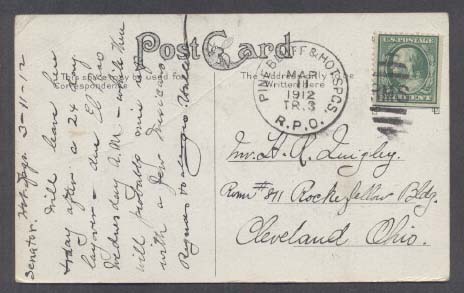 Post Card
This space may be used for Correspondence
The Address only to be Written Here
PINE BLUFF & HOT SPGS.
MAR
11
1912
TR.3
R.P.O.
U.S. POSTAGE
Hot Spgs. 3-11-12
Senator.
Will leave here
today after a 24 hour
layover - due El Paso
Wednesday A.M. - while there
will probably mix it
with a few Mexicans
Regards to
Mr. H. R. Quigley.
Room #811 Rockefellow Bldg.
Cleveland Ohio.